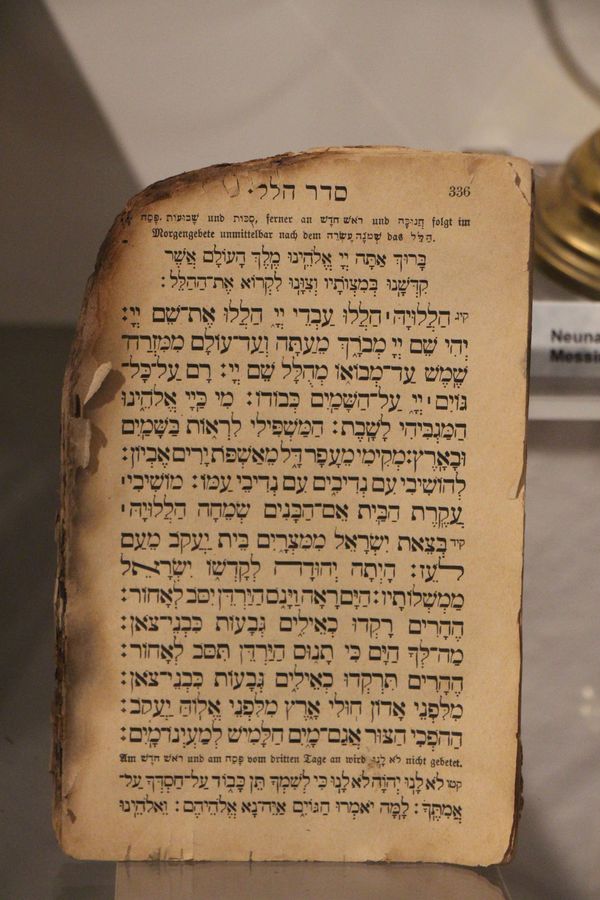 336
סדר הלל.
פֶּסַח, שָׁבוּעוֹת und סֻכּוֹת, ferner an רֹאשׁ חֹדֶשׁ und חֲנוּכָּה folgt im
Morgengebete unmittelbar nach dem שְׁמֹנֶה עֶשְׂרֵה das הַלֵּל.
בָּרוּךְ אַתָּה יְיָ אֱלֹהֵינוּ מֶלֶךְ הָעוֹלָם אֲשֶׁר
קִדְּשָׁנוּ בְּמִצְוֹתָיו וְצִוָּנוּ לִקְרוֹא אֶת־הַהַלֵּל:
קיג הַלְלוּיָהּ׀ הַלְלוּ עַבְדֵי יְיָ הַלְלוּ אֶת־שֵׁם יְיָ:
יְהִי שֵׁם יְיָ מְבֹרָךְ מֵעַתָּה וְעַד־עוֹלָם מִמִּזְרַח־
שֶׁמֶשׁ עַד־מְבוֹאוֹ מְהֻלָּל שֵׁם יְיָ: רָם עַל־כָּל־
גּוֹיִם׀ יְיָ עַל־הַשָּׁמַיִם כְּבוֹדוֹ: מִי כַּיְיָ אֱלֹהֵינוּ
הַמַּגְבִּיהִי לָשָׁבֶת: הַמַּשְׁפִּילִי לִרְאוֹת בַּשָּׁמַיִם
וּבָאָרֶץ: מְקִימִי מֵעָפָר דָּל מֵאַשְׁפֹּת יָרִים אֶבְיוֹן:
לְהוֹשִׁיבִי עִם נְדִיבִים עִם נְדִיבֵי עַמּוֹ: מוֹשִׁיבִי׀
עֲקֶרֶת הַבַּיִת אֵם־הַבָּנִים שְׂמֵחָה הַלְלוּיָהּ׀
קיד בְּצֵאת יִשְׂרָאֵל מִמִּצְרָיִם בֵּית יַעֲקֹב מֵעַם
לֹעֵז: הָיְתָה יְהוּדָה לְקָדְשׁוֹ יִשְׂרָאֵל
מַמְשְׁלוֹתָיו: הַיָּם רָאָה וַיָּנֹס הַיַּרְדֵּן יִסֹּב לְאָחוֹר:
הֶהָרִים רָקְדוּ כְאֵילִים גְּבָעוֹת כִּבְנֵי־צֹאן:
מַה־לְּךָ הַיָּם כִּי תָנוּס הַיַּרְדֵּן תִּסֹּב לְאָחוֹר:
הֶהָרִים תִּרְקְדוּ כְאֵילִים גְּבָעוֹת כִּבְנֵי־צֹאן:
מִלִּפְנֵי אָדוֹן חוּלִי אָרֶץ מִלִּפְנֵי אֱלוֹהַּ יַעֲקֹב:
הַהֹפְכִי הַצּוּר אֲגַם־מָיִם חַלָּמִישׁ לְמַעְיְנוֹ־מָיִם:
Am רֹאשׁ חֹדֶשׁ und am פֶּסַח vom dritten Tage an wird לֹא לָנוּ nicht gebetet.
קטו לֹא לָנוּ יְהֹוָה לֹא לָנוּ כִּי לְשִׁמְךָ תֵּן כָּבוֹד עַל־חַסְדְּךָ עַל־
אֲמִתֶּךָ: לָמָּה יֹאמְרוּ הַגּוֹיִם אַיֵּה־נָא אֱלֹהֵיהֶם: וֵאלֹהֵינוּ